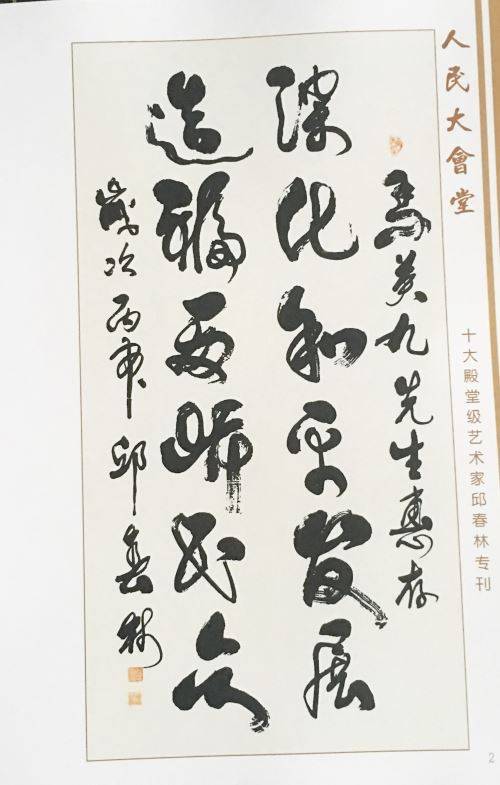 人民大會堂
十大殿堂级艺术家邱春林专刊
馬英九先生惠存
深化和平發展
造福两岸民众
歲次丙申 邱春林
2